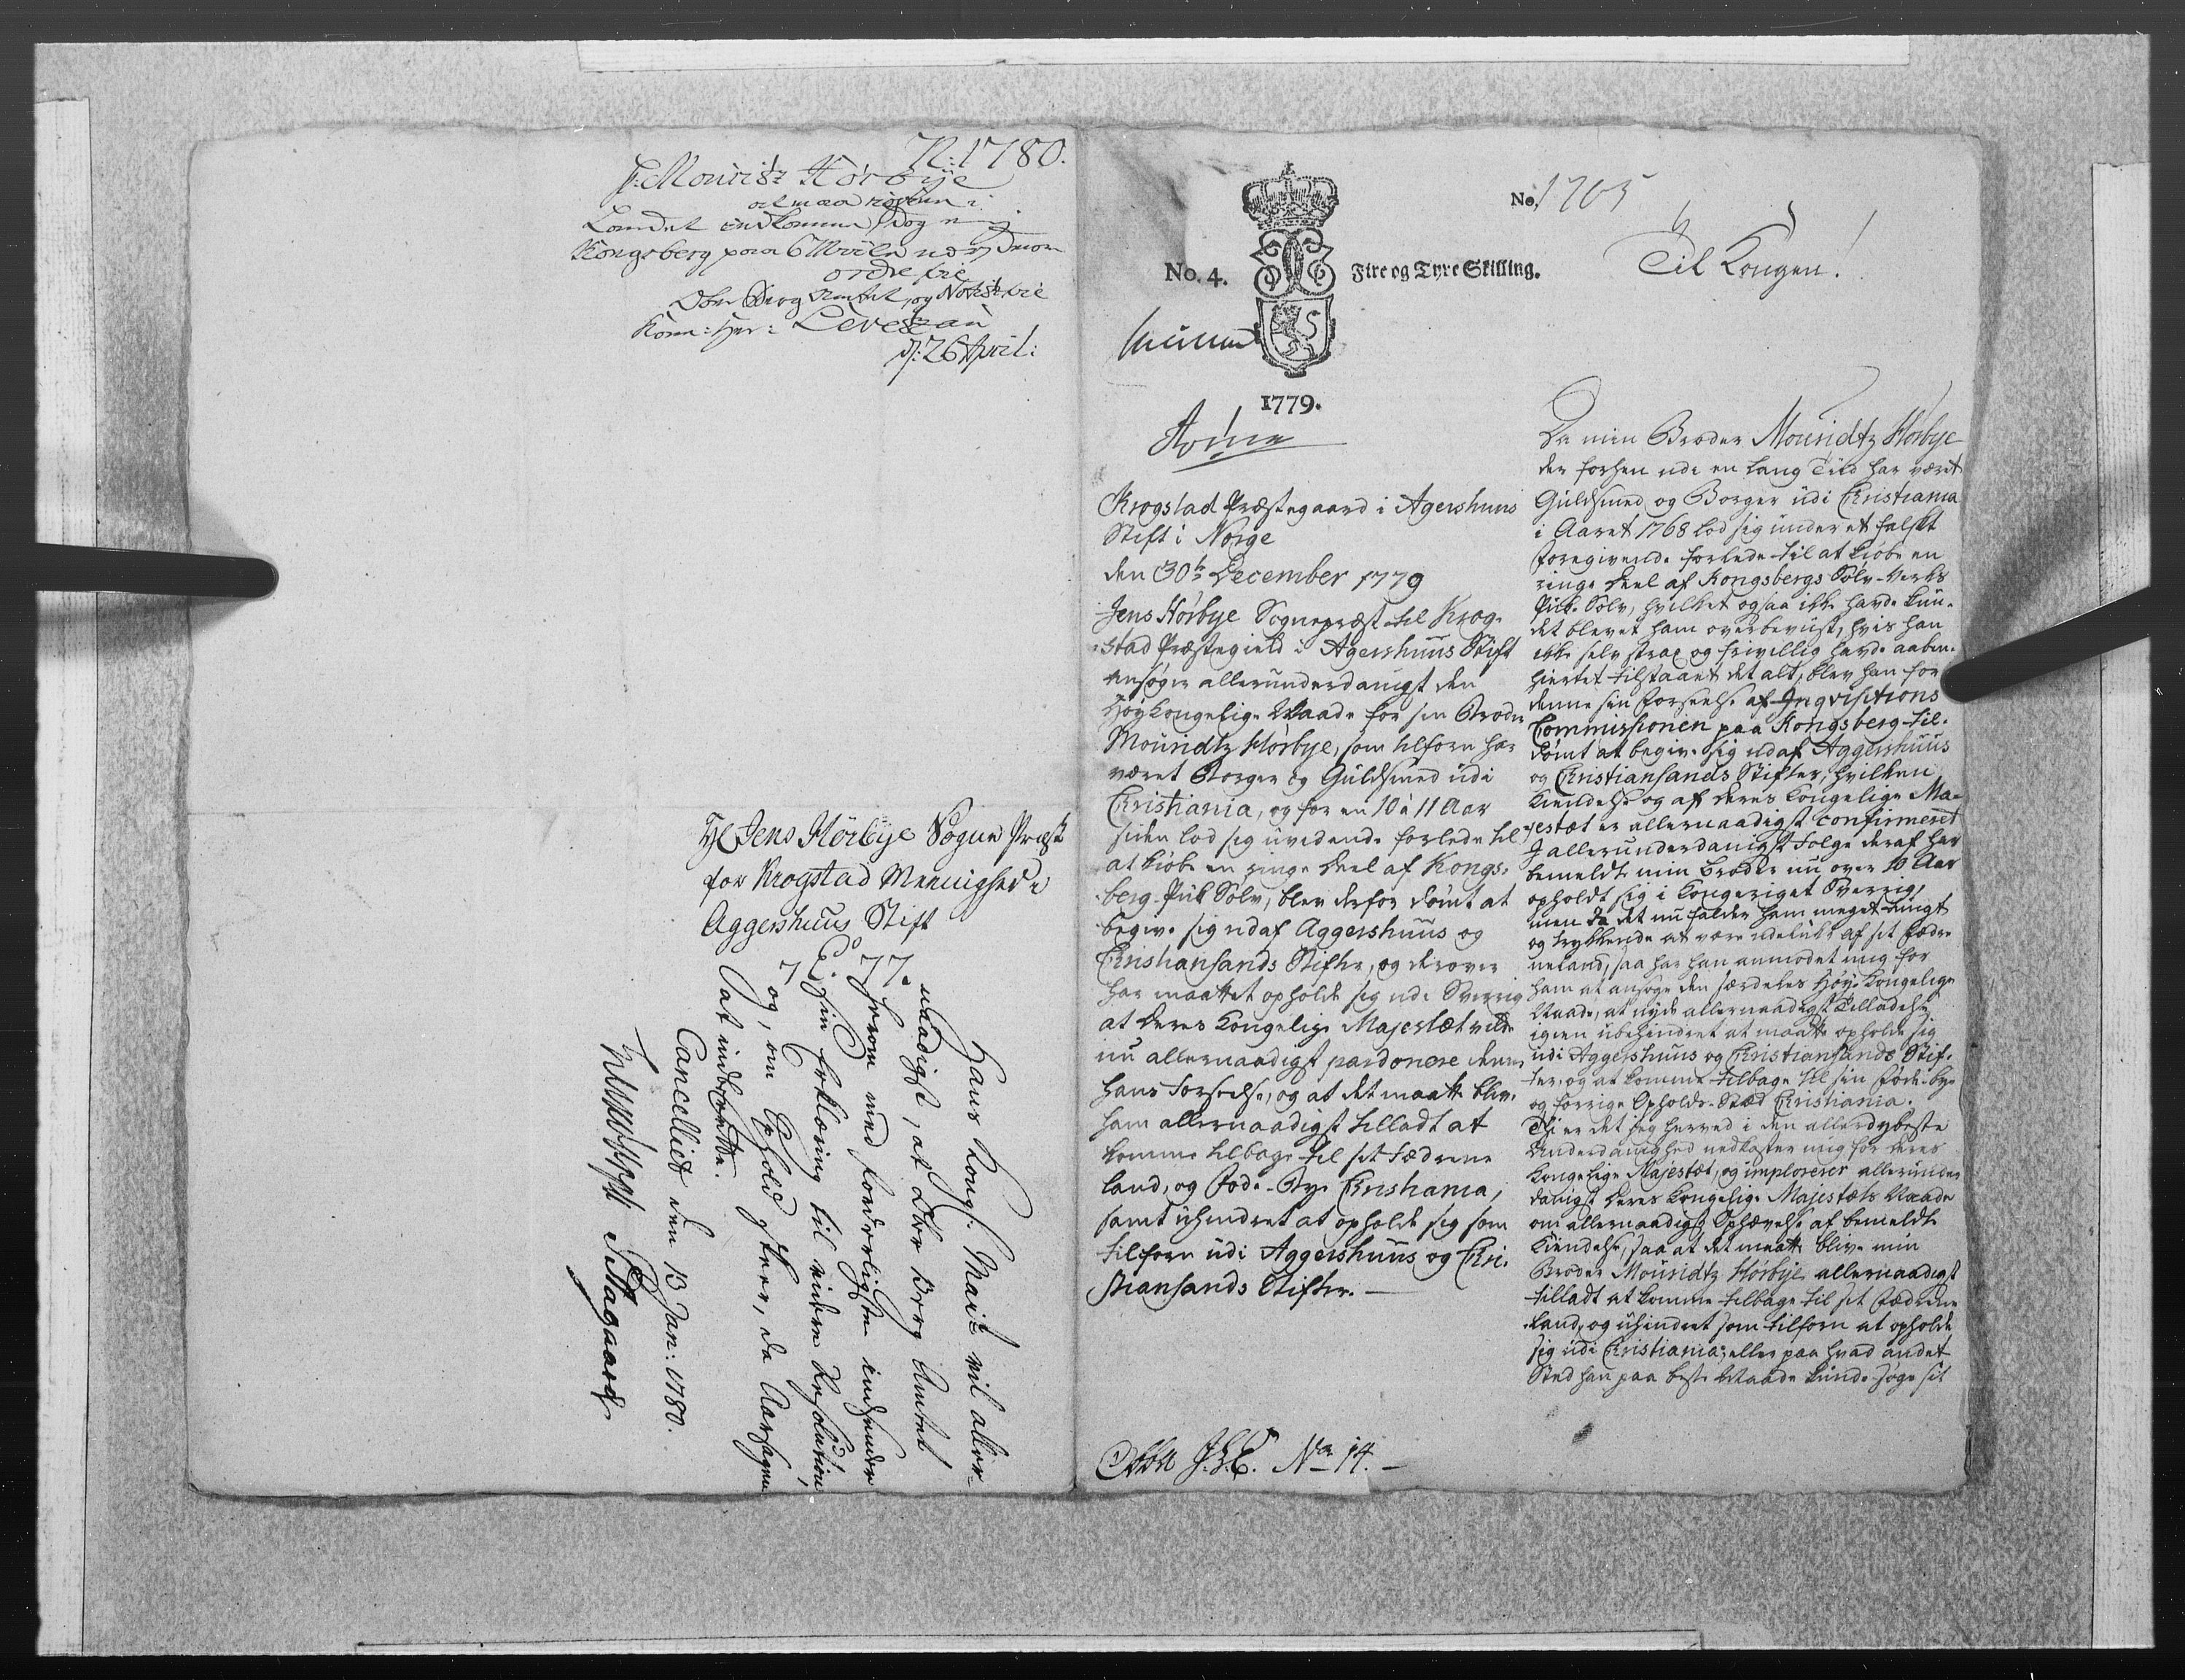 N: 1780.
f: Mouritz Hörbÿe
at maa
Landet indkomme, dog ej
Kongsberg paa 6 Miile nær,
ordre
Ober Berg Amtet, og Notits
Kam: Her: Levetzau
d: 26 April:
Hl Jens Hörbÿe Sogne Præst
for Krogstad Meenighed i
Aggershuus Stift
Hans Kongl. Mait. vil aller-
naadigst, at Ober Berg Amtet
herom med forderligste indsender
sin Erklæring til videre Resolution,
og, om Ophold skeer, da Aarsagen
dat indberette.
Cancelliet den 13 Jan: 1780.
Aagaard
No. 4.
Fire og Tyve Skilling.
1779.
No. 1705
Til Kongen!
Krogstad Præstegaard i Agershuus
Stift i Norge
den 30te December 1779
Jens Hörbye Sognepræst til Krog-
stad Præstegield i Agershuus Stift
ansøger allerunderdanigst den
Høykongelige Naade for sin Broder
Mouridtz Hörbye, som tilforn har
været Borger og Guldsmed udi
Christiania, og for en 10 à 11 Aar
siden lod sig uvidende forlede til
at kiøbe en ringe Deel af Kongs-
berg-Puk Sølv, blev derfor dömt at
begive sig ud af Aggershuus og
Christiansands Stifter, og derover
har maattet opholde sig udi Sverrig
at Deres Kongelige Majestæt vilde
nu allernaadigst pardonere denne
hans Forseelse, og at det maatte blive
ham allernaadigst tilladt at
komme tilbage til sit Fædrene
land, og Føde-Bye Christiania,
samt uhindret at opholde sig som
tilforn udi Aggershuus og Chri-
stiansands Stifter. —
No 14. —
Da min Broder Mouridtz Hörbye
der forhen udi en lang Tiid har været
Guldsmed og Borger udi Christiania
i Aaret 1768 lod sig under et falskt
Foregivende forlede til at kiøbe en
ringe Deel af Kongsbergs Sølv-Verks
Puk-Sølv, hvilket ogsaa ikke havde kun-
det blevet ham overbevüst, hvis han
ikke selv strax og frivillig havde aaben-
hiertet tilstaaet det alt, blev han for
denne sin Forseelse af Inqvisitions
Commissionen paa Kongsberg til-
dömt at begive sig ud af Aggershuus
og Christiansands Stifter, hvilken
Kiendelse og af Deres Kongelige Ma-
jestæt er allernaadigst confirmeret
I allerunderdanigst Følge deraf har
bemeldte min Broder nu over 10 Aar
opholdt sig i Kongeriget Sverrig,
men da det nu falder ham meget tungt
og trykkende at være udelukt af sit Fædre
neland, saa har han anmodet mig for
ham at ansøge den særdeles Høy-Kongelige
Naade, at nyde allernaadigst Tilladelse
igien ubehindret at maatte opholde sig
udi Aggershuus og Christiansands Stif-
ter, og at komme tilbage til sin Føde-bye
og forrige Opholds-Stæd Christiania.
Thi er det jeg herved i den allerdybeste
Underdanighed nedkaster mig for Deres
Kongelige Majestæt, og implorerer allerunder
danigst Deres Kongelige Majestæts Naade
om allernaadigst Ophævelse af bemeldte
Kiendelse, saa at det maatte blive min
Broder Mouridtz Hörbye allernaadigst
tilladt at komme tilbage til sit Fædrene
land, og uhindret som tilforn at opholde
sig udi Christiania, eller paa hvad andet
Sted han paa beste Maade kunde søge sit